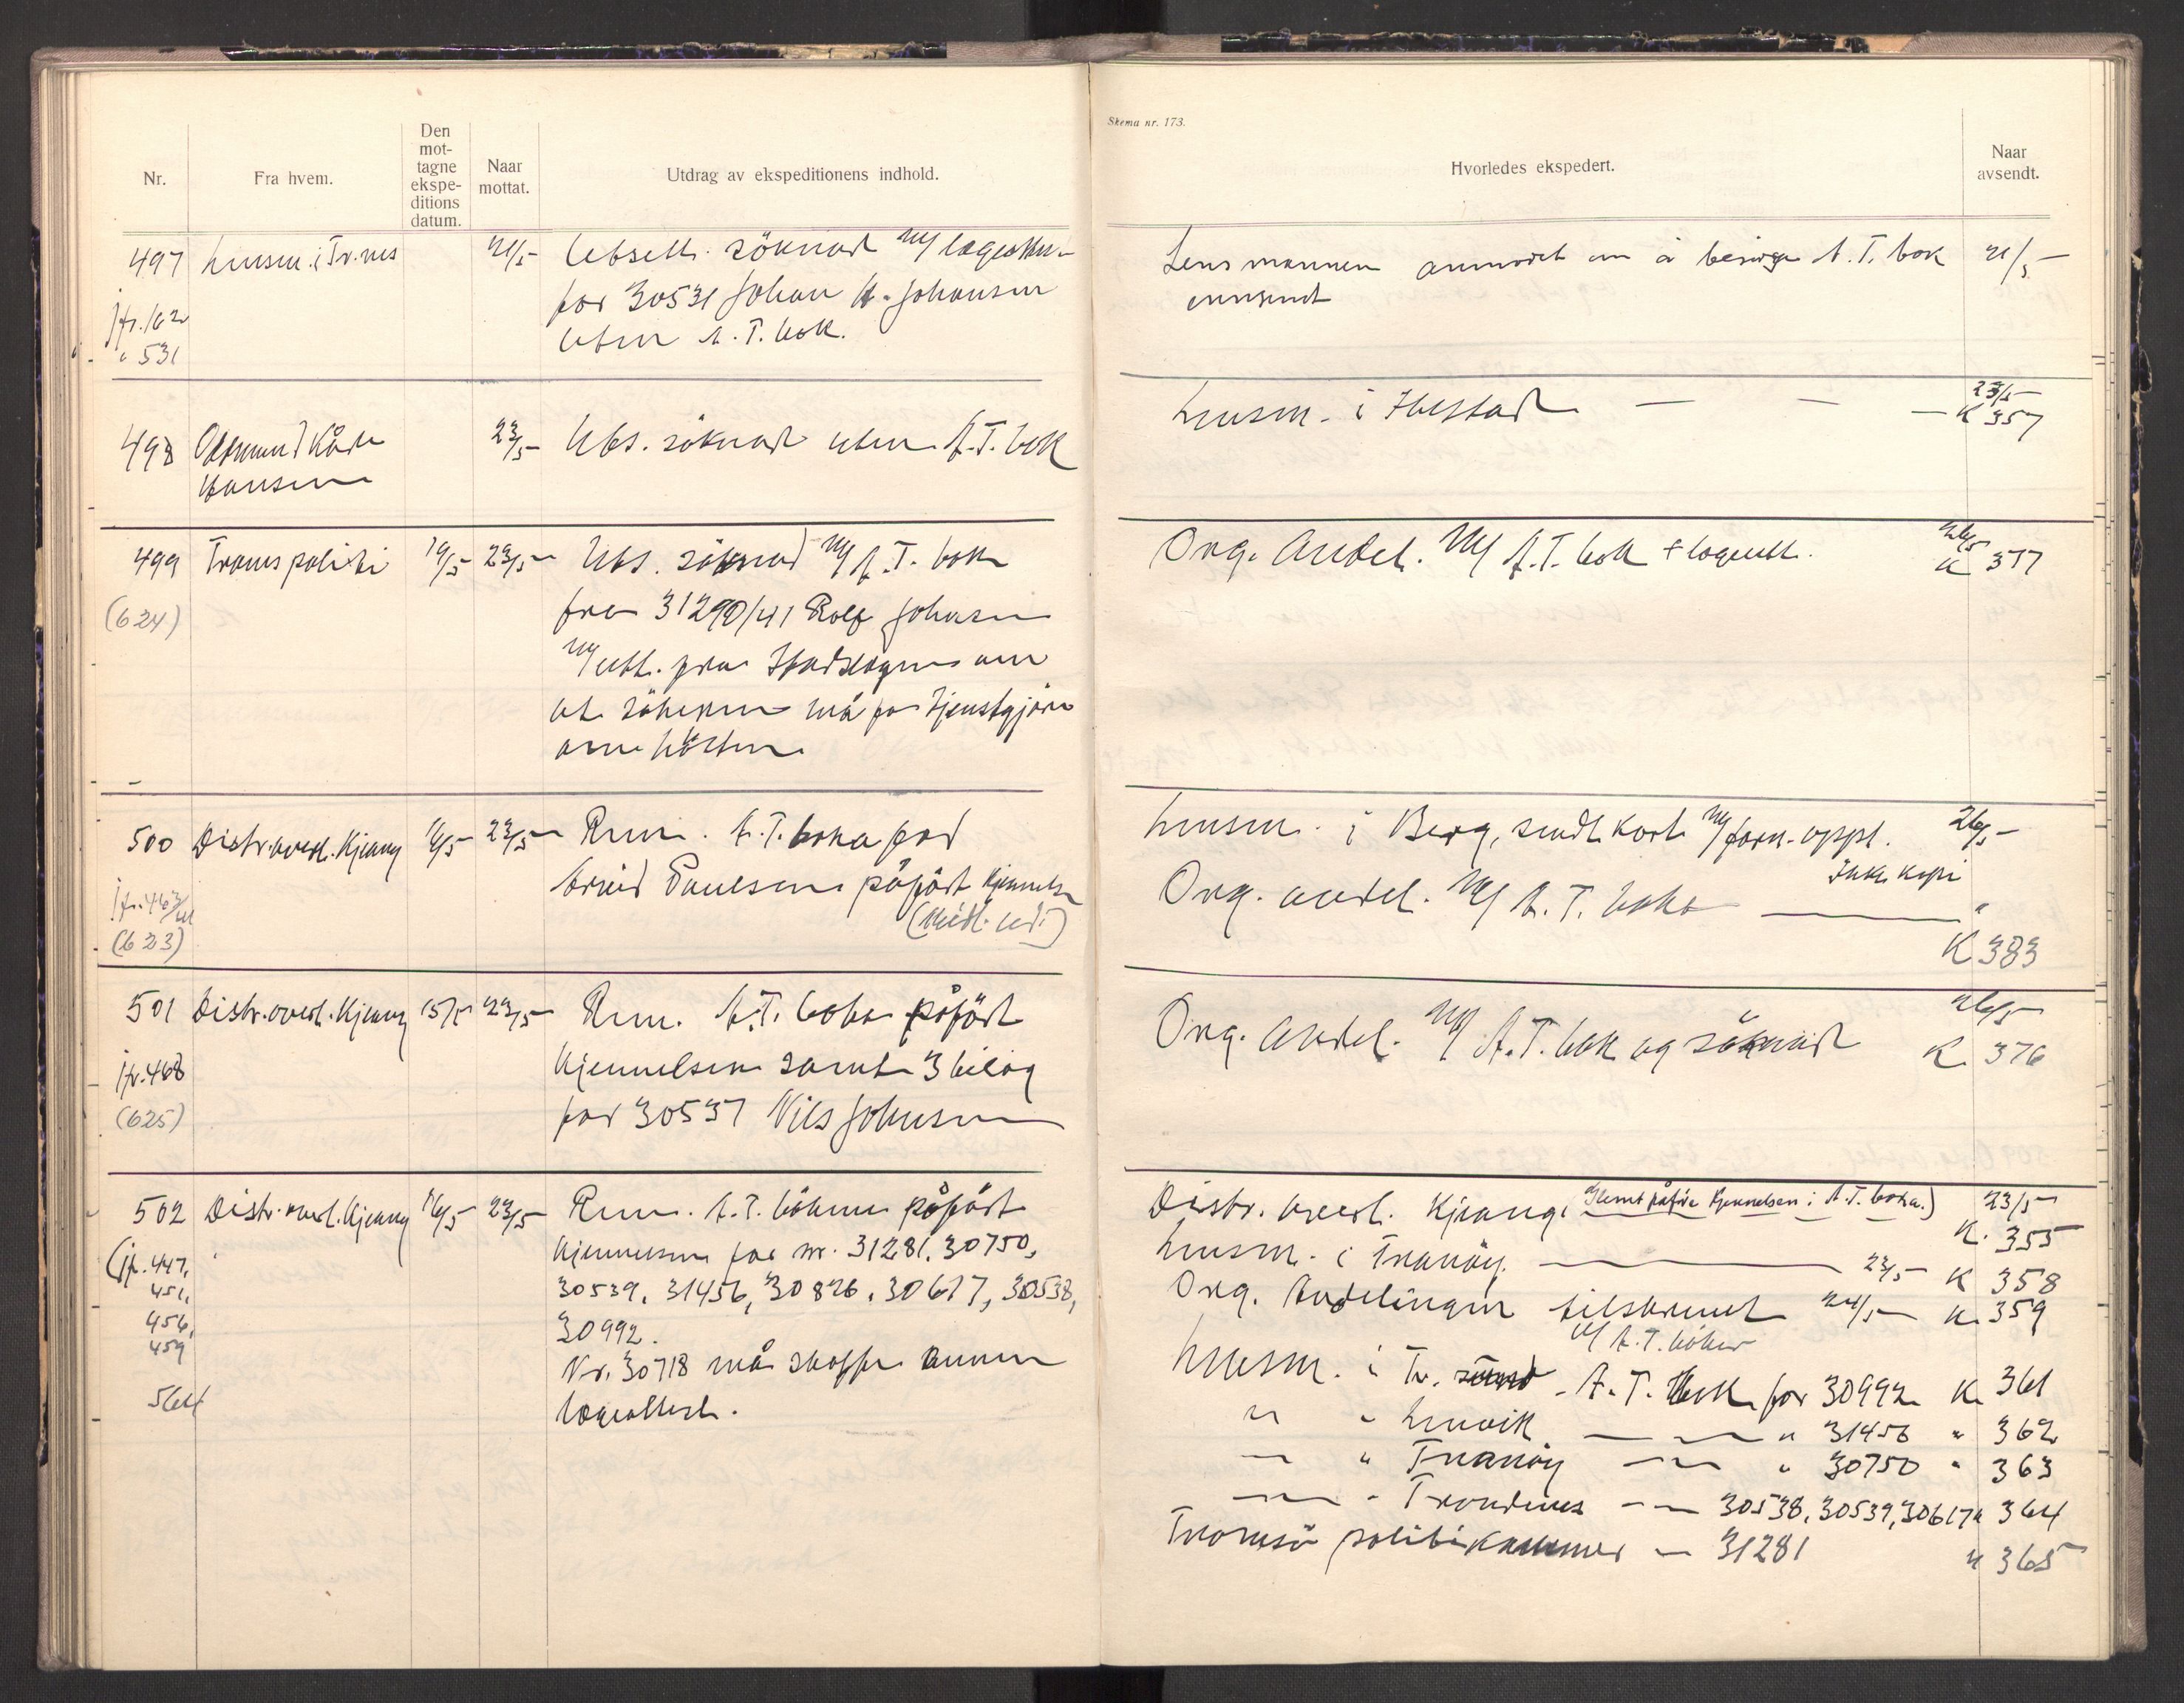 Nr.
Fra hvem.
Den
mot-
tagne
ekspe-
ditions
datum.
Naar
mottat.
Utdrag av ekspeditionens indhold.
497 Lensm. i Tr.nes 21/5 Utsett. söknad m/ legeattest
jfr. 162
" 531
for 30531 Johan A. Johansen
uten A.T. bok.
498 Kåre
Hansen
23/5 Uts. söknad uten A.T. bok
499 Troms politi 19/5 23/5 Uts. söknad m/ A.T. bok
(624)
fra 31290/41 Rolf Johnsen
m/ utt. fra om
at søkeren må få tjenstgjøre
om hösten
500 Distr.overl. Kjeang 16/5 23/5 Rem. A.T. boka for
jfr. 463/41
(623)
Paulsen påfört kjennelse
(Midl. ud.)
501 Distr.overl. Kjeang 15/5 23/5 Rem. A.T. boka påfört
jfr. 468
(625)
kjennelsen samt 3 bilag
for 30537 Nils Johnsen
502 Distr.overl. Kjeang 16/5 23/5 Rem. A.T. bökene påfört
(jfr. 447,
451,
456,
459
564
kjennelsen for nr. 31281, 30750,
30539, 31456, 30826, 30617, 30538,
30992.
Nr. 30718 må skaffe annen
legeattest.
Skema nr. 173.
Hvorledes ekspedert.
Naar
avsendt.
Lensmannen anmodet om å besörge A.T. bok 21/5
innsendt
Lensm. i Ibestad — — — 23/5
K 357
Org. Avdel. m/ A.T. bok + legeatt. 26/5
K 377
Lensm. i Berg, sendt kort m/ forn. oppl. 26/5
Ikke kopi
Org. avdel. m/ A.T. boka — "
K 383
Org. Avdel. m/ A.T. bok og söknad 26/5
K. 376
Distr. overl. Kjeang (Glemt påföre kjennelsen i A.T. boka.) 23/5
K. 355
Lensm. i Tranöy — 23/5 K 358
Org. Avdelingen tilskrevet 24/5 K. 359
m/ A.T. böker
Lensm. i Tr. sund - A.T. bok for 30992 K 361
" " Lenvik — " 31456 " 362
— " Tranöy — " 30750 " 363
— " Trondenes — 30538, 30539, 30617 " 364
Tromsö politikammer — 31281 " 365